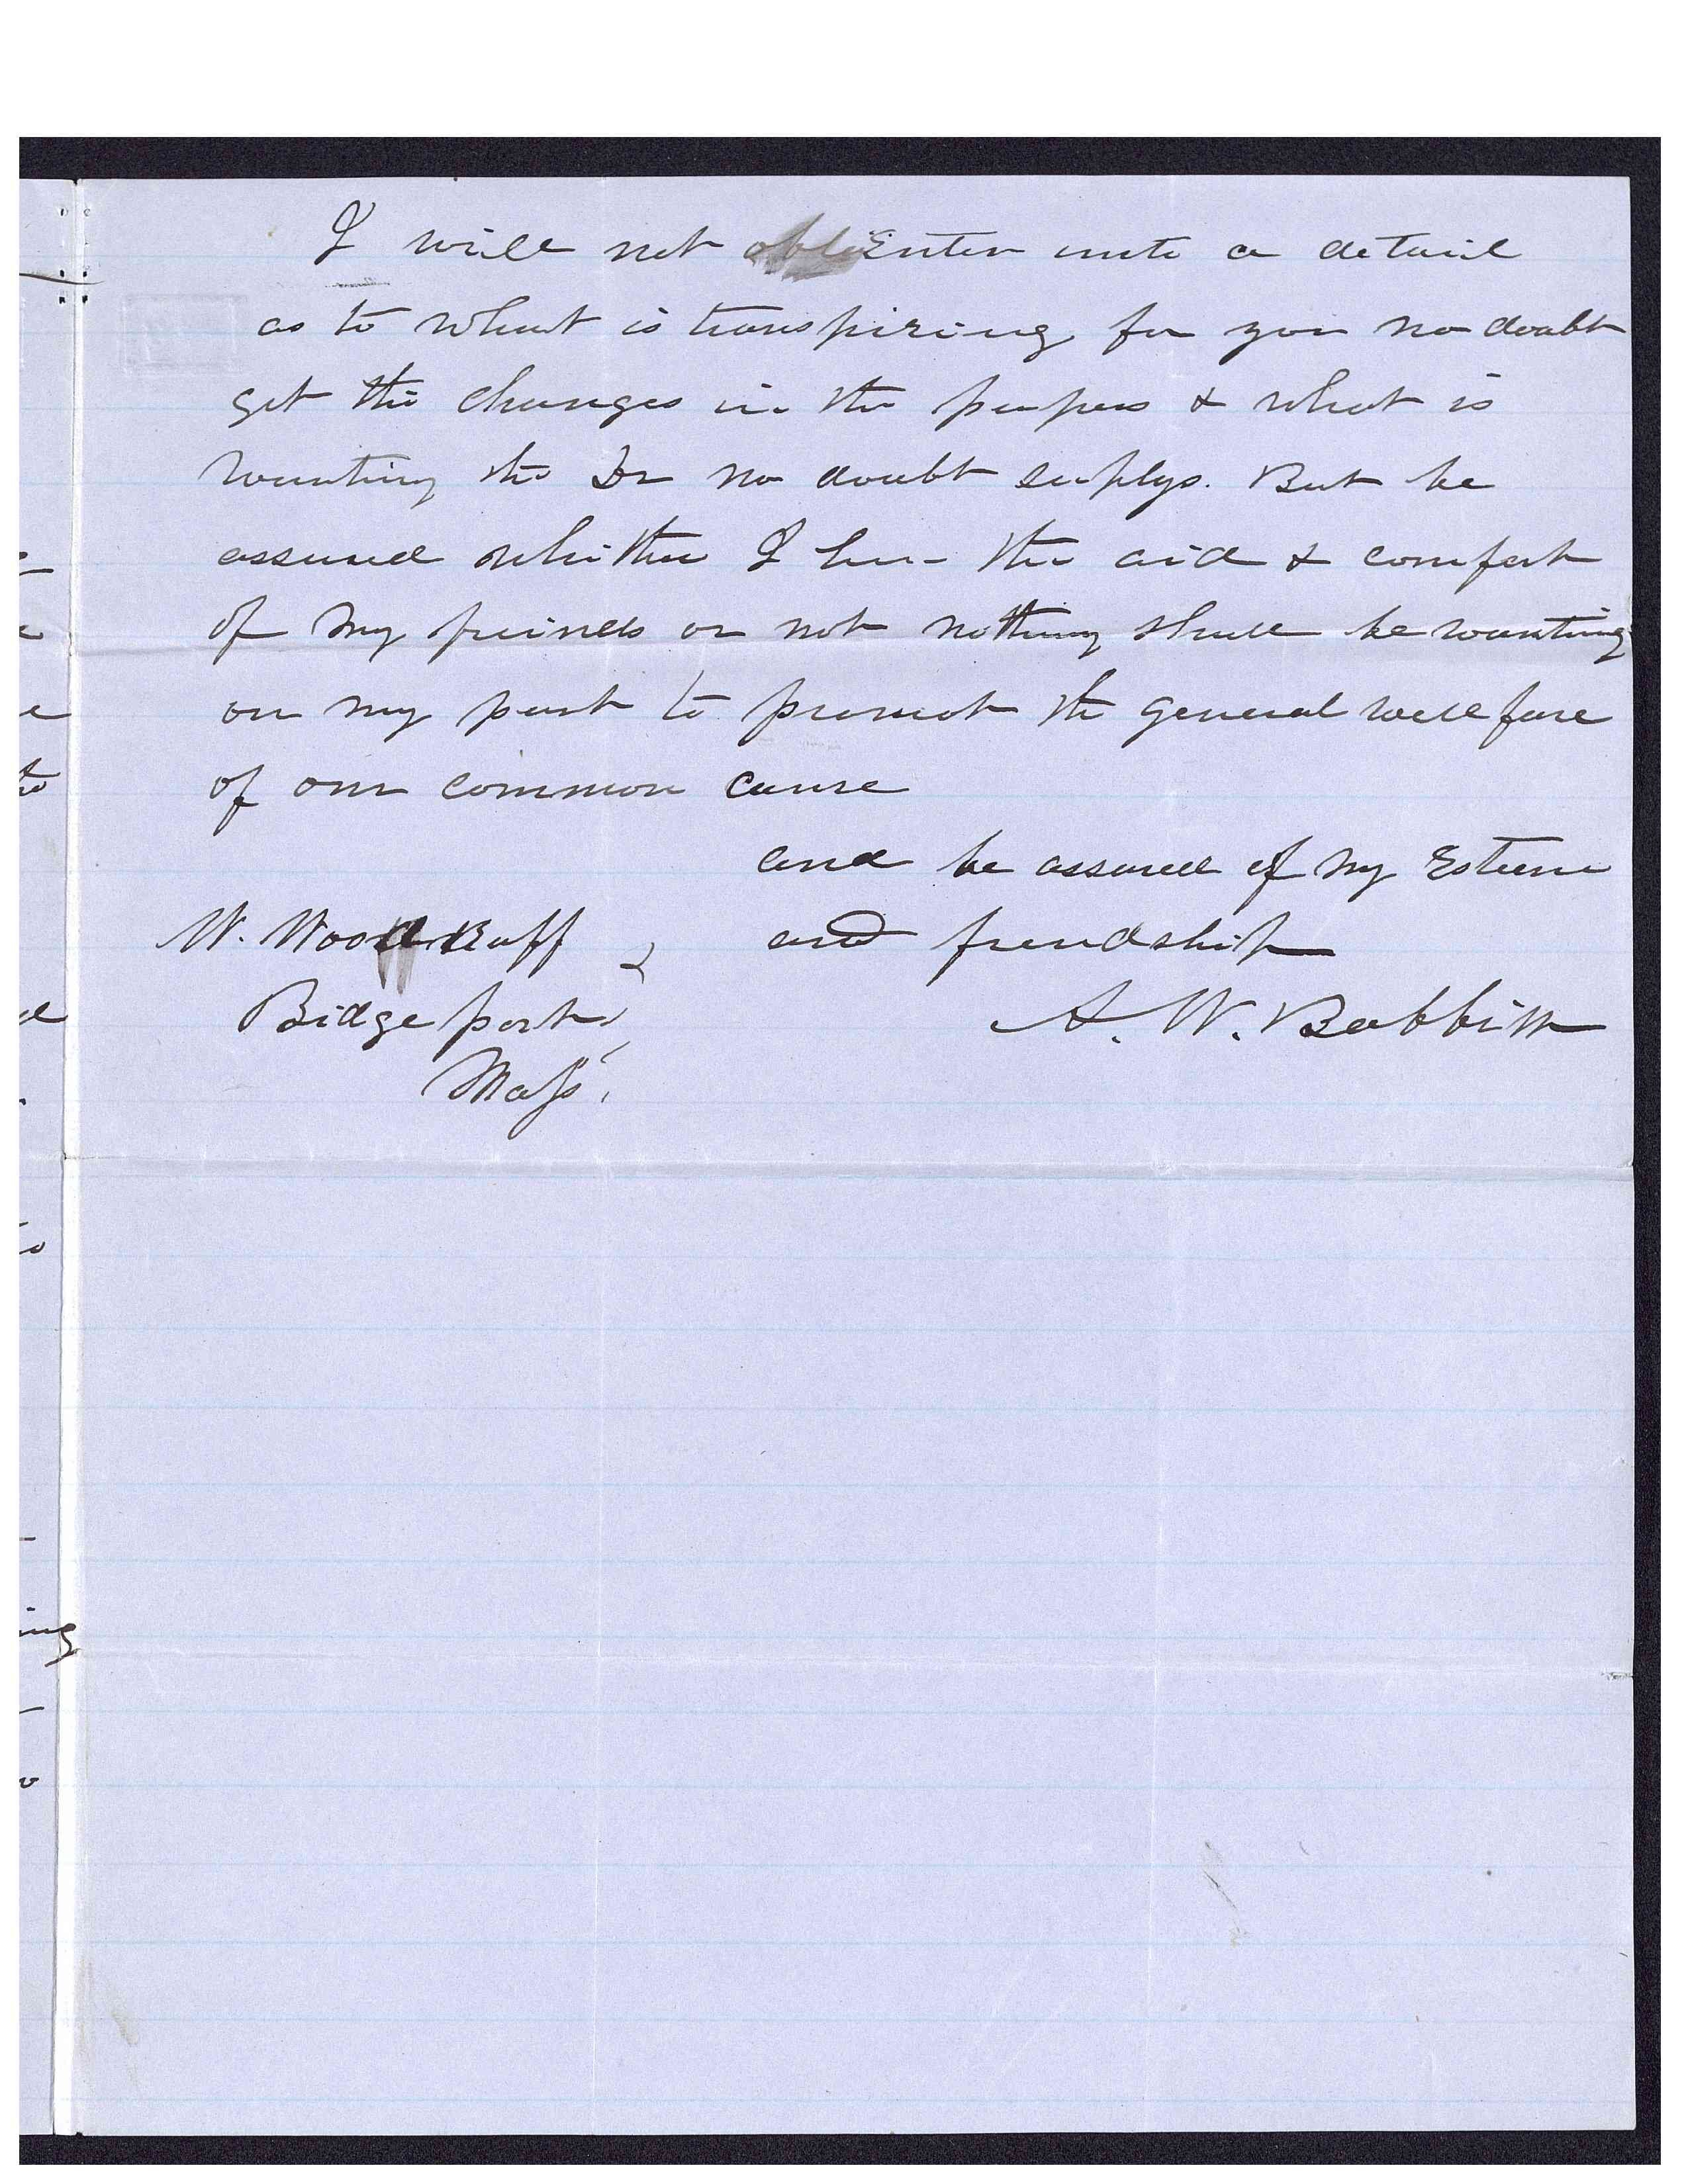 I will not Enter unto a detail
as to what is transpiring for you no doubt
get the changes in the papers & what is
wanting the Dr no doubt suplys. But be
assured whither I have the aid & comfort
of my freinds or not nothing shall be wanting
on my part to promot the general wellfare
of our common cause
and be assured of my Esteem
and frendship
A. W. Babbitt
W. Woodruff
Bidgeport
Mass.